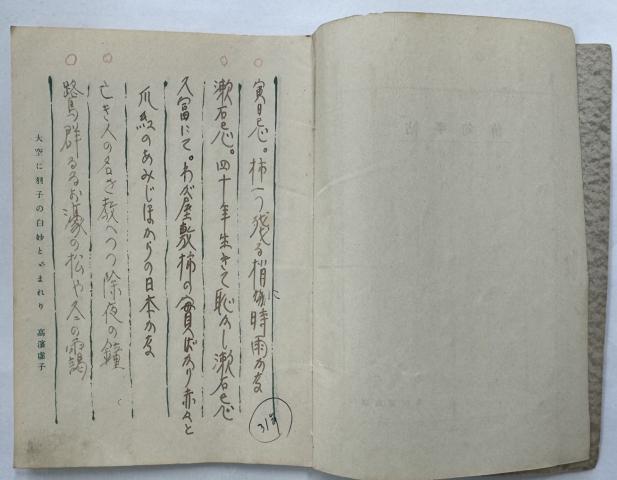 寅日忌。柿一つ残る梢に時雨かな
漱石忌。四十年生きて恥かし漱石忌
久富にて。わが屋敷柿の實ばかり赤々と
爪紅のあみじほからの日本かな
亡き人の名を教へつつ除夜の鐘
鷺鳥群るるお濠の松や冬の靄
大空に羽子の白妙とゞまれり 高濱虚子
31